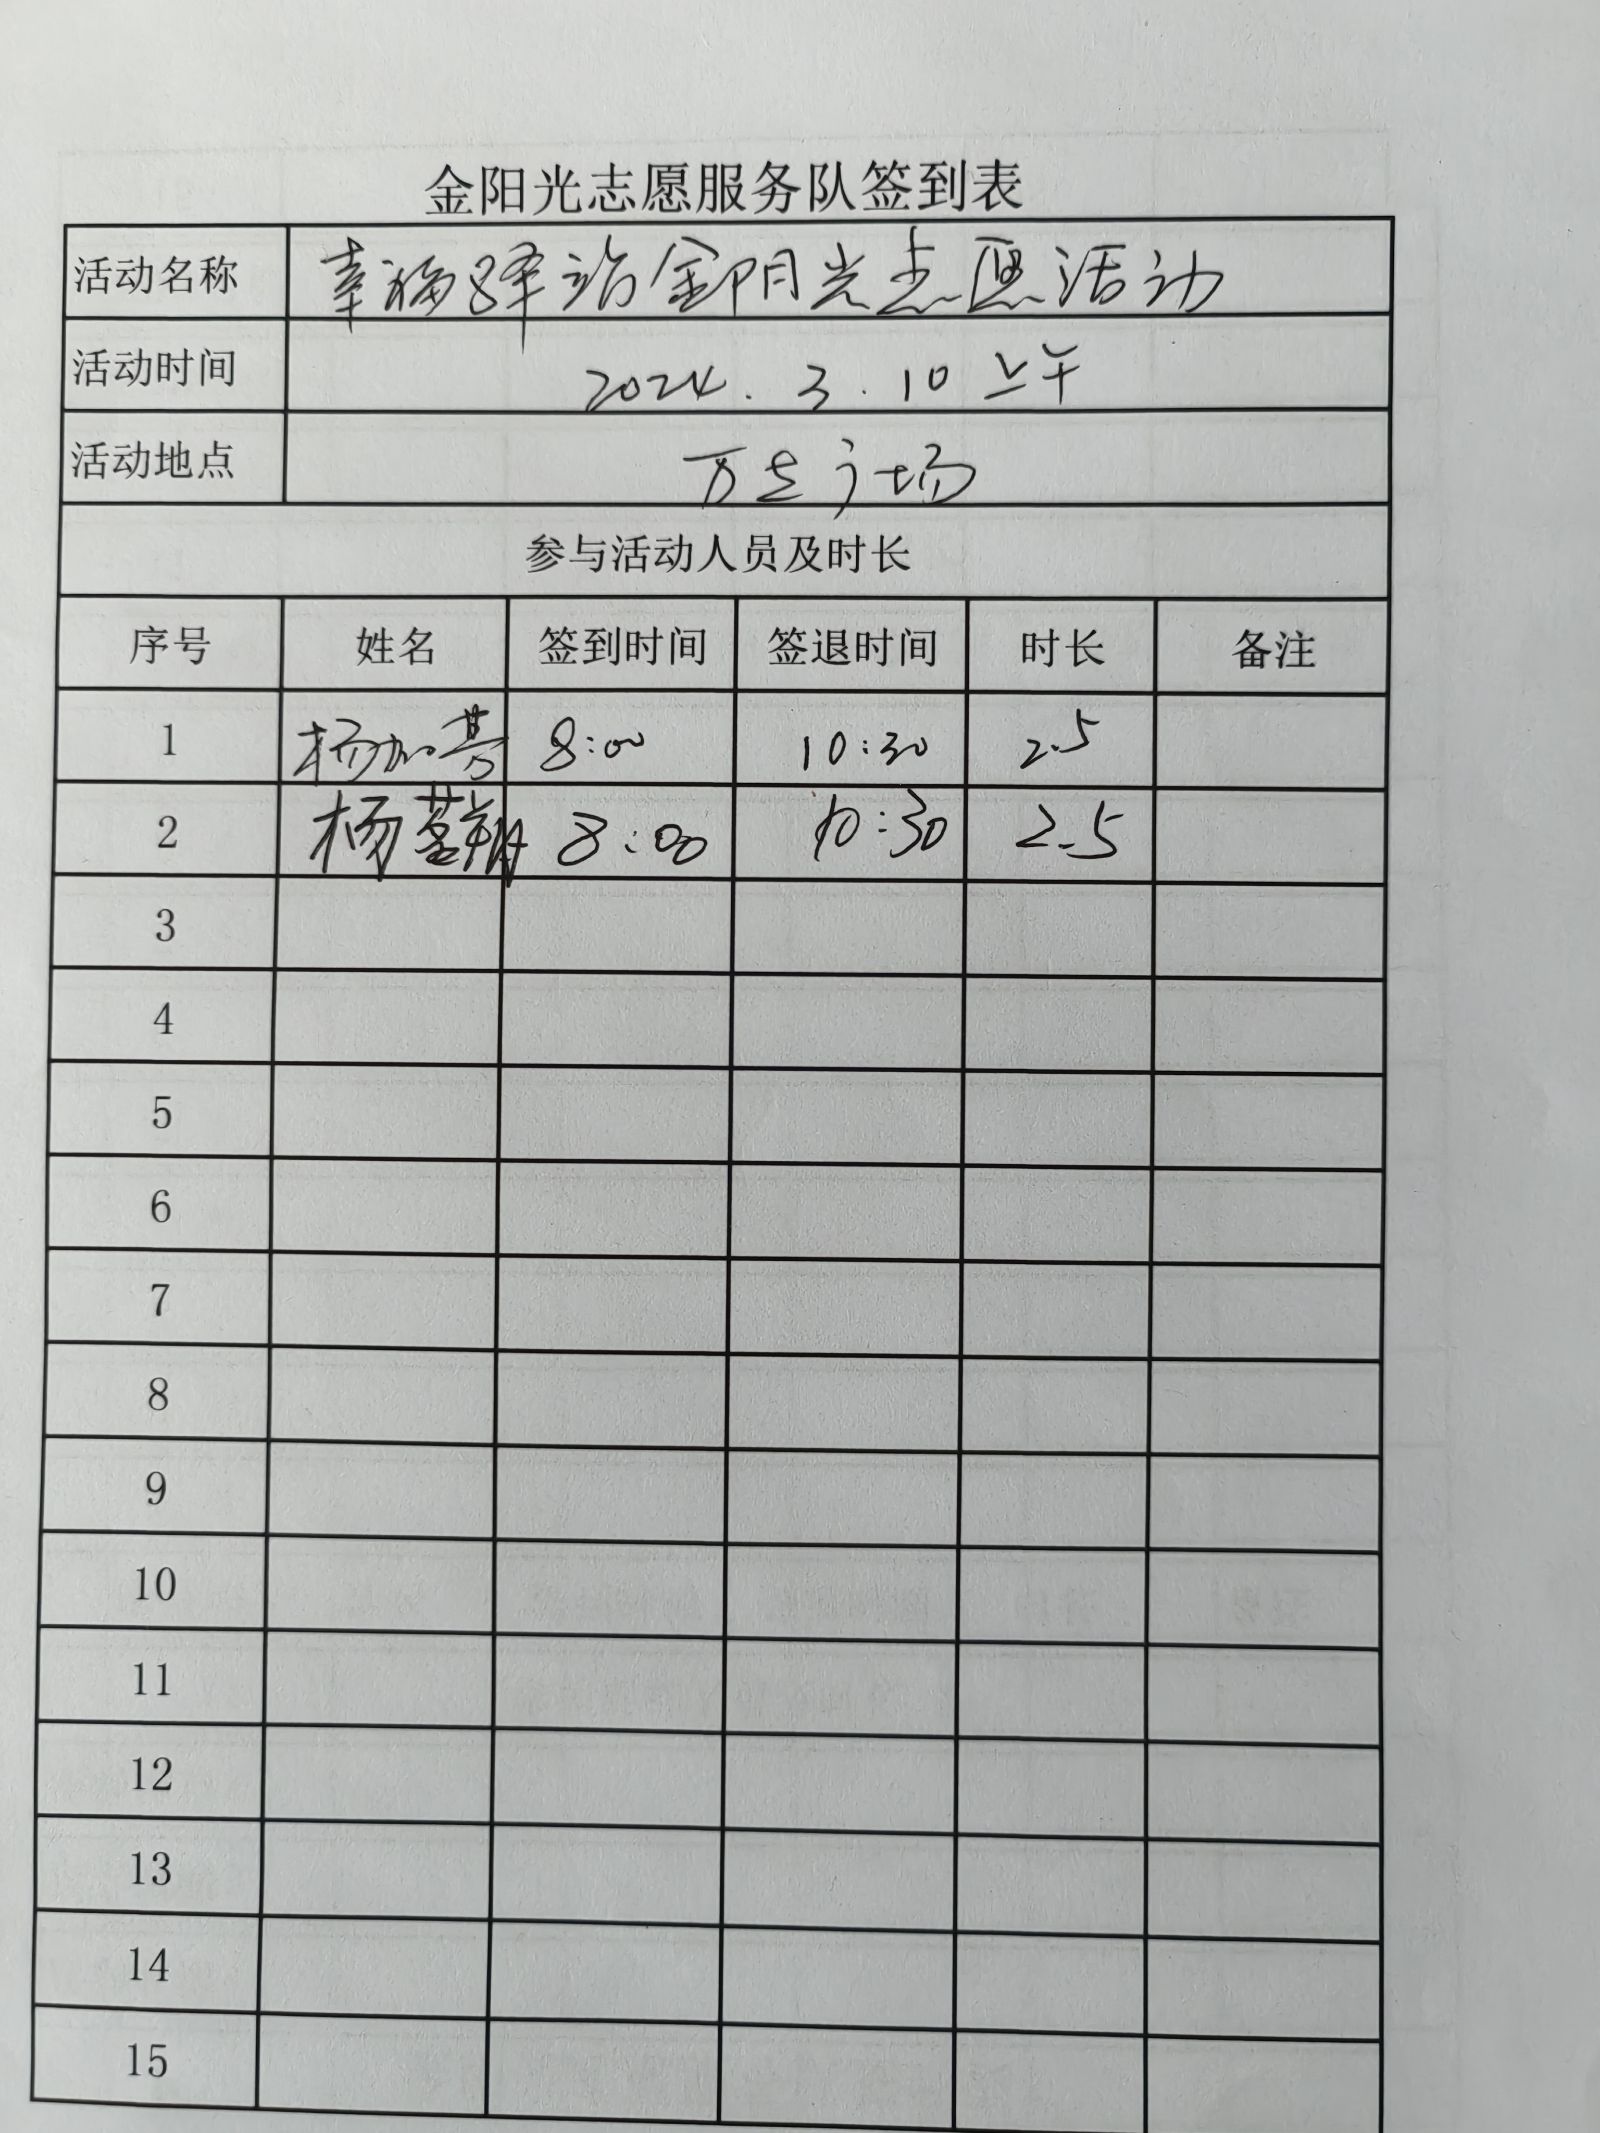 金阳光志愿服务队签到表
活动名称 幸福驿站金阳光志愿活动
活动时间 2024.3.10 上午
活动地点 万达广场
参与活动人员及时长
序号 姓名 签到时间 签退时间 时长 备注
1 杨加 8:00 10:30 2.5
2 杨 8:00 10:30 2.5
3
4
5
6
7
8
9
10
11
12
13
14
15